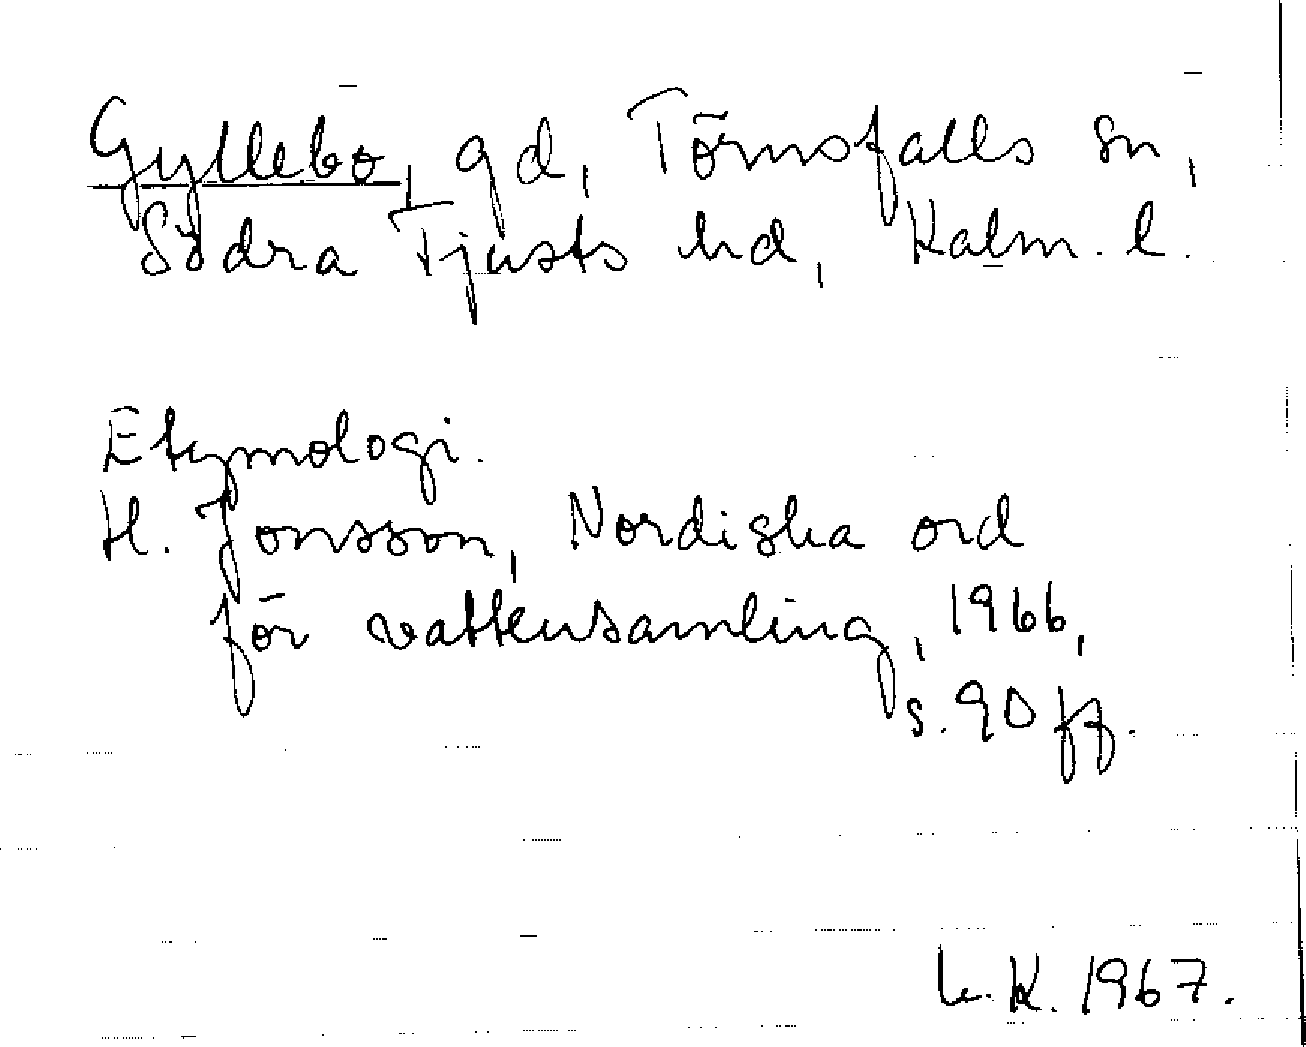 Gyllebo, gd, Törnsfalls sn,
Södra Tjusts hd, Kalm. l.
Etymologi.
H. Jonsson, Nordiska ord
för vattensamling, 1966,
s. 90 ff.
L.K. 1967.